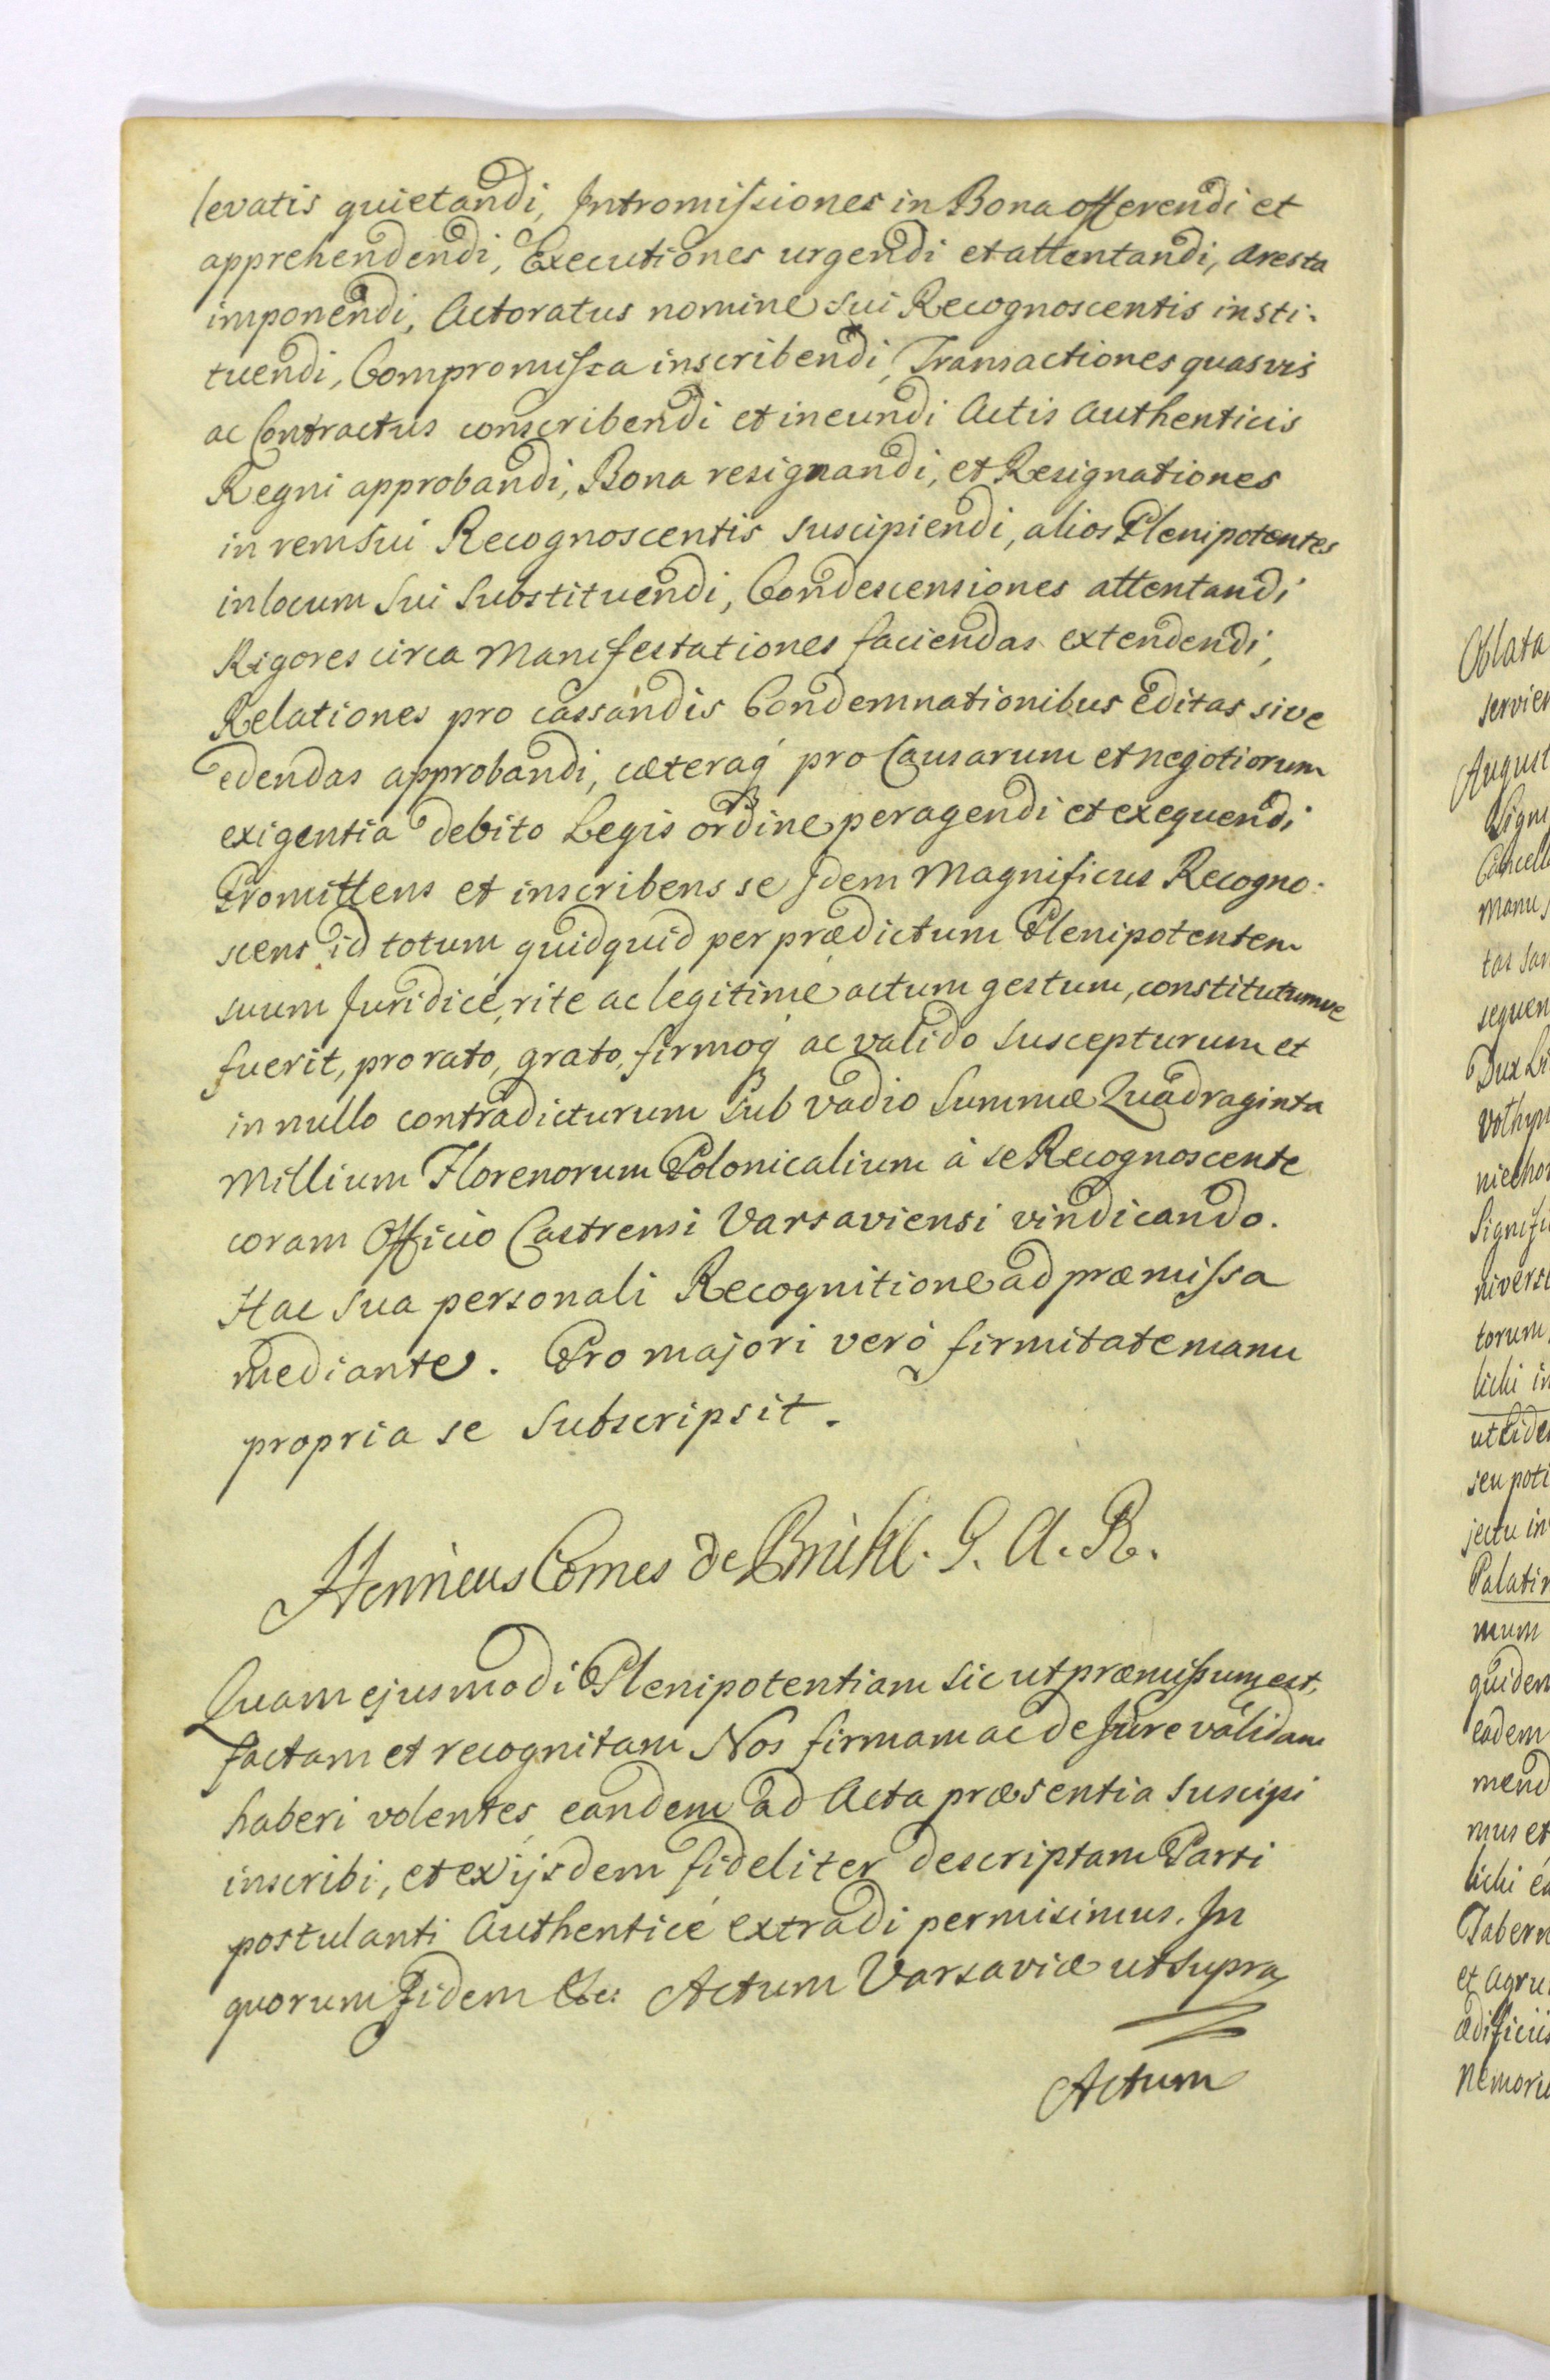 levatis quietandi, Intromissiones in Bona offerendi et
apprehendendi, Executiones urgendi et attentandi, Aresta
imponendi, Actoratus nomine sui Recognoscentis insti-
tuendi, Compromissa inscribendi, Transactiones quasvis
ac Contractus conscribendi et ineundi Actis Authenticis
Regni approbandi, Bona resignandi, et Resignationes
in rem sui Recognoscentis suscipiendi, alios Plenipotentes
in locum sui substituendi, Condescensiones attentandi
Rigores circa Manifestationes faciendas extendendi,
Relationes pro cassandis Condemnationibus editas sive
edendas approbandi, cæteraq́ pro Causarum et negotiorum
exigentia debito Legis ordine peragendi et exequendi
Promittens et inscribens se Idem Magnificus Recogno-
scens id totum quidquid per prædictum Plenipotentem
suum Juridicé, rite ac legitimé actum gestum, constitutumve
fuerit, pro rato, grato, firmoq́ ac valido suscepturum et
in nullo contradicturum sub vadio summæ Quadraginta
Millium Florenorum Polonicalium à se Recognoscente
coram Officio Castrensi Varsaviensi vindicando.
Hac sua personali Recognitione ad præmissa
mediante. Pro majori veró firmitate manu
propria se subscripsit.
Henricus Comes de Brühl. G. A. R.
Quam ejusmodi Plenipotentiam sic ut præmissum est,
factam et recognitam Nos firmam ac de Jure validam
haberi volentes, eandem ad Acta præsentia suscipi
inscribi, et ex ijsdem fideliter descriptam Parti
postulanti Authenticé extradi permisimus. In
quorum Fidem &c: Actum Varsaviæ ut supra
Actum
Oblata
servien
August
Cancell
manu
sequen
Dux Li
Volhyn
Signifi
niversi
torum
lichi in
seu poti
jectu in
Palatin
mum
quidem
eadem
mend
mus et
lichi
Tabern
et Agru
ædificiis